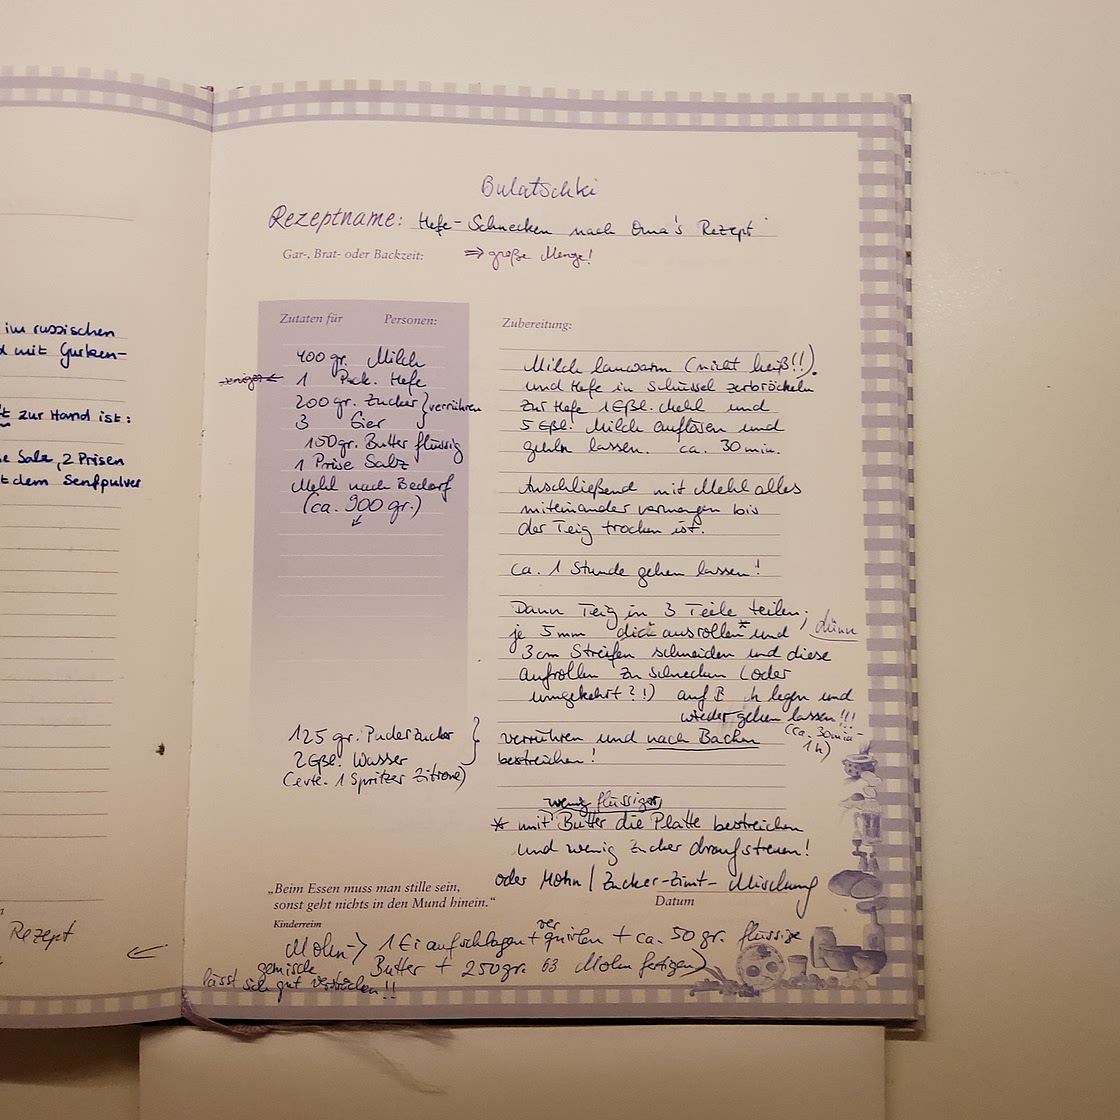 im russischen
mit Gurken-
zur Hand ist:
Salz, 2 Prisen
dem Senfpulver
Rezept
Bulatschki
Rezeptname: Hefe-Schnecken nach Oma's Rezept
Gar-, Brat- oder Backzeit: ⇒ große Menge!
Zutaten für Personen:
400 gr. Milch
1 Pack. Hefe
200 gr. Zucker } verrühren
3 Eier
150 gr. Butter flüssig
1 Prise Salz
Mehl nach Bedarf
(ca. 900 gr.)
125 gr. Puderzucker
2 Eßl. Wasser
(evtl. 1 Spritzer Zitrone)
Zubereitung:
Milch lauwarm (nicht heiß!!).
und Hefe in Schüssel zerbröckeln
zur Hefe 1 Eßl. Mehl und
5 Eßl. Milch auflösen und
gehen lassen. ca. 30 min.
Anschließend mit Mehl alles
miteinander vermengen bis
der Teig trocken ist.
ca. 1 Stunde gehen lassen!
Dann Teig in 3 Teile teilen,
je 5 mm dick ausrollen* und dünn
3 cm Streifen schneiden und diese
aufrollen zu Schnecken (oder
umgekehrt?!) auf legen und
wieder gehen lassen!!!
(ca. 30 min-
1h)
verrühren und nach Backen
bestreichen!
wenig flüssiger
* mit Butter die Platte bestreichen
und wenig Zucker draufstreuen!
oder Mohn / Zucker-Zimt-Mischung
Datum
„Beim Essen muss man stille sein,
sonst geht nichts in den Mund hinein.“
Kinderreim
Mohn → 1 Ei aufschlagen + verquirlen + ca. 50 gr. flüssige
Butter + 250 gr. Mohn fertigen)
lässt sich gut verstreichen!!